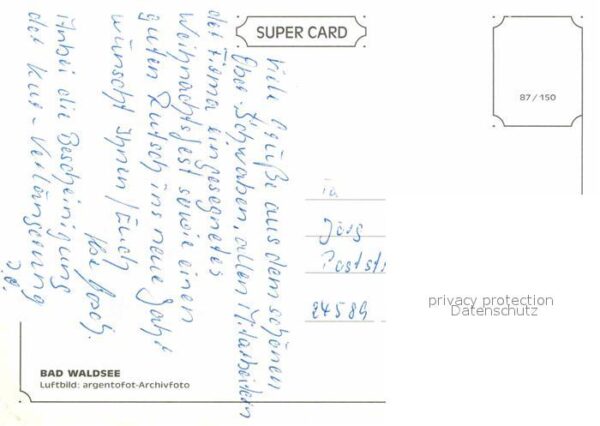 SUPER CARD
87/150
Viele Grüße aus dem schönen
Ober-Schwaben, allen Mitarbeitern
der Firma ein gesegnetes
Weihnachtsfest sowie einen
guten Rutsch ins neue Jahr
wünscht Ihnen/Euch
Anbei die Bescheinigung
der Kur-Verlängerung
Fa
Jörg
Poststr
24589
privacy protection
Datenschutz
BAD WALDSEE
Luftbild: argentofot-Archivfoto